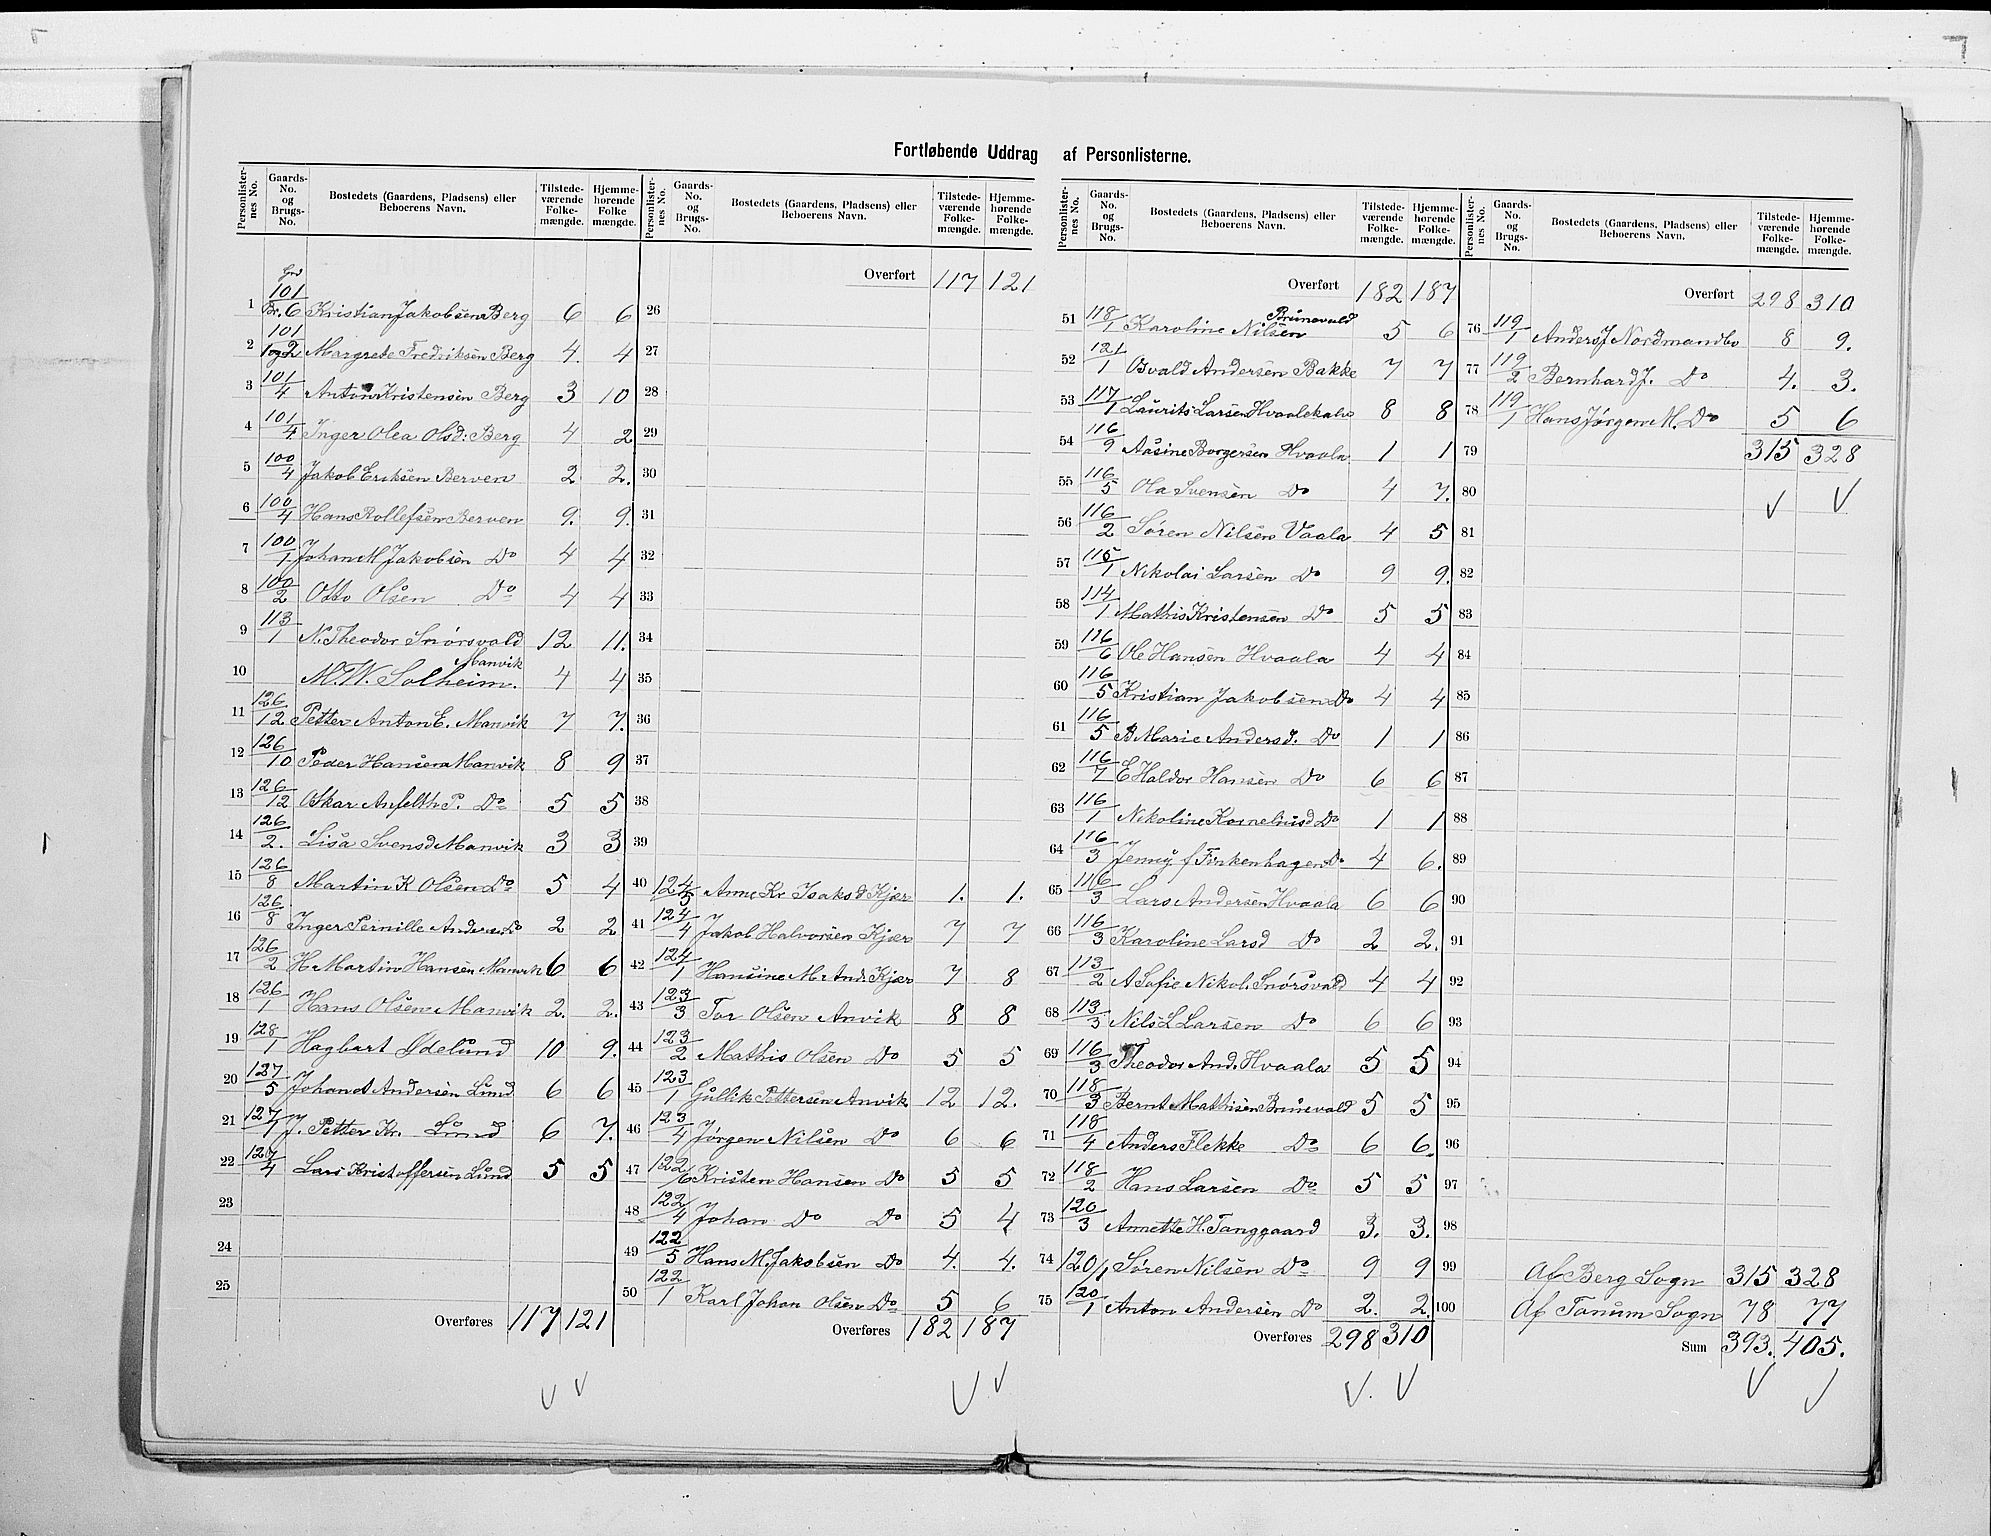 Fortløbende Uddrag af Personlisterne.
Personlisternes No. Gaards-No. og Brugs-No. Bostedets (Gaardens, Pladsens) eller Beboerens Navn. Tilstedeværende Folkemængde. Hjemmehørende Folkemængde.
1 Grd 101 Br. 6 Kristian Jakobsen Berg 6 6
2 101/1og2 Margrete Fredriksen Berg 4. 4
3 101/4 Anton Kristensen Berg 3 10
4 101/4 Inger Olea Olsd: Berg 4 2
5 100/4 Jakob Eriksen Berven 2 2.
6 100/4 Hans Rollefsen Berven 9. 9.
7 100/1. Johan M Jakobsen Do 4 4
8 100/2 Otto Olsen Do 4 4
9 113/1 N. Theodor Snørsvald 12 11.
10 M. W. Solheim. Manvik 4 4
11 126/12 Petter Anton E. Manvik 7 7.
12 126/10 Peder Hansen Manvik 8 9
13 126/12 Oskar Anfelth P. Do 5 5
14 126/2. Lisa Svensd Manvik 3 3
15 126/8 Martin K Olsen Do 5 4
16 126/8 Inger Pernille Anders. Do 2 2
17 126/2 H. Martin Hansen Manvik 6 6
18 126/1 Hans Olsen Manvik 2. 2.
19 128/1 Hagbart Ødelund 10 9.
20 127/5 Johan A Andersen Lund 6 6
21 127/1 J. Petter Kr. Lund 6 7.
22 127/4 Lars Kristoffersen Lund 5 5
23
24
25
Overføres 117 121
Personlisternes No. Gaards-No. og Brugs-No. Bostedets (Gaardens, Pladsens) eller Beboerens Navn. Tilstedeværende Folkemængde. Hjemmehørende Folkemængde.
Overført 117 121
26
27
28
29
30
31
32
33
34
35
36
37
38
39
40 124/5 Anne Kr Isaksd Kjær 1. 1.
41 124/4 Jakob Halvorsen Kjær 7 7
42 124/1 Hansine M. And. Kjær 7 8
43 123/3 Tor Olsen Anvik 8 8
44 123/2 Mathis Olsen Do 5 5
45 123/1 Gullik Pettersen Anvik 12 12.
46 123/4 Jørgen Nilsen Do 6 6
47 122/6 Kristen Hansen Do 5 5
48 122/4 Johan Do Do 5 4
49 122/5 Hans M. Jakobsen Do 4. 4.
50 122/1 Karl Johan Olsen Do 5 6
Overføres 182 187
Personlisternes No. Gaards-No. og Brugs-No. Bostedets (Gaardens, Pladsens) eller Beboerens Navn. Tilstedeværende Folkemængde. Hjemmehørende Folkemængde.
Overført 182 187
51 118/1 Karoline Nilsen Brunevald 5 6
52 121/1 Osvald Andersen Bakke 7 7
53 117/1 Laurits Larsen 8 8
54 116/9 Aasine Borgersen Hvaala 1 1
55 116/5 Ola Svensen Do 4 7.
56 116/2 Søren Nilsen Vaala 4 5
57 115/1 Nikolai Larsen Do 9 9.
58 114/1 Mathis Kristensen Do 5 5
59 116/6 Ole Hansen Hvaala 4 4
60 116/5 Kristian Jakobsen Do 4 4
61 116/5 B Marie Andersd. Do 1 1
62 116/7 E Haldor Hansen Do 6 6
63 116/1 Nikoline Kornelinsd Do 1 1
64 116/3 Jenny f Finkenhagen Do 4 6.
65 116/3 Lars Andersen Hvaala 6 6
66 116/3 Karoline Larsd Do 2 2.
67 113/2 A Sofie Nikol. Snørsvald 4 4
68 113/3 Nils L Larsen Do 6 6
69 116/3 Theodor And. Hvaala 5 5
70 118/3 Bernt Mathisen Brunevald 5 5
71 118/4 Anders Flekke Do 6 6.
72 118/2 Hans Larsen Do 5 5
73 120/3 Annette H. Tanggaard 3. 3.
74 120/1 Søren Nilsen Do 9 9
75 120/1 Anton Andersen Do 2. 2.
Overføres 298 310
Personlisternes No. Gaards-No. og Brugs-No. Bostedets (Gaardens, Pladsens) eller Beboerens Navn. Tilstedeværende Folkemængde. Hjemmehørende Folkemængde.
Overført 298 310
76 119/1 Anders J Nordmandbo 8 9.
77 119/2 Bernhard J. Do 4. 3.
78 119/1 Hans Jørgen M. Do 5 6
79 315 328
80
81
82
83
84
85
86
87
88
89
90
91
92
93
94
95
96
97
98
99 Af Berg Sogn 315 328
100 Af Tanum Sogn 78 77
Sum 393. 405.